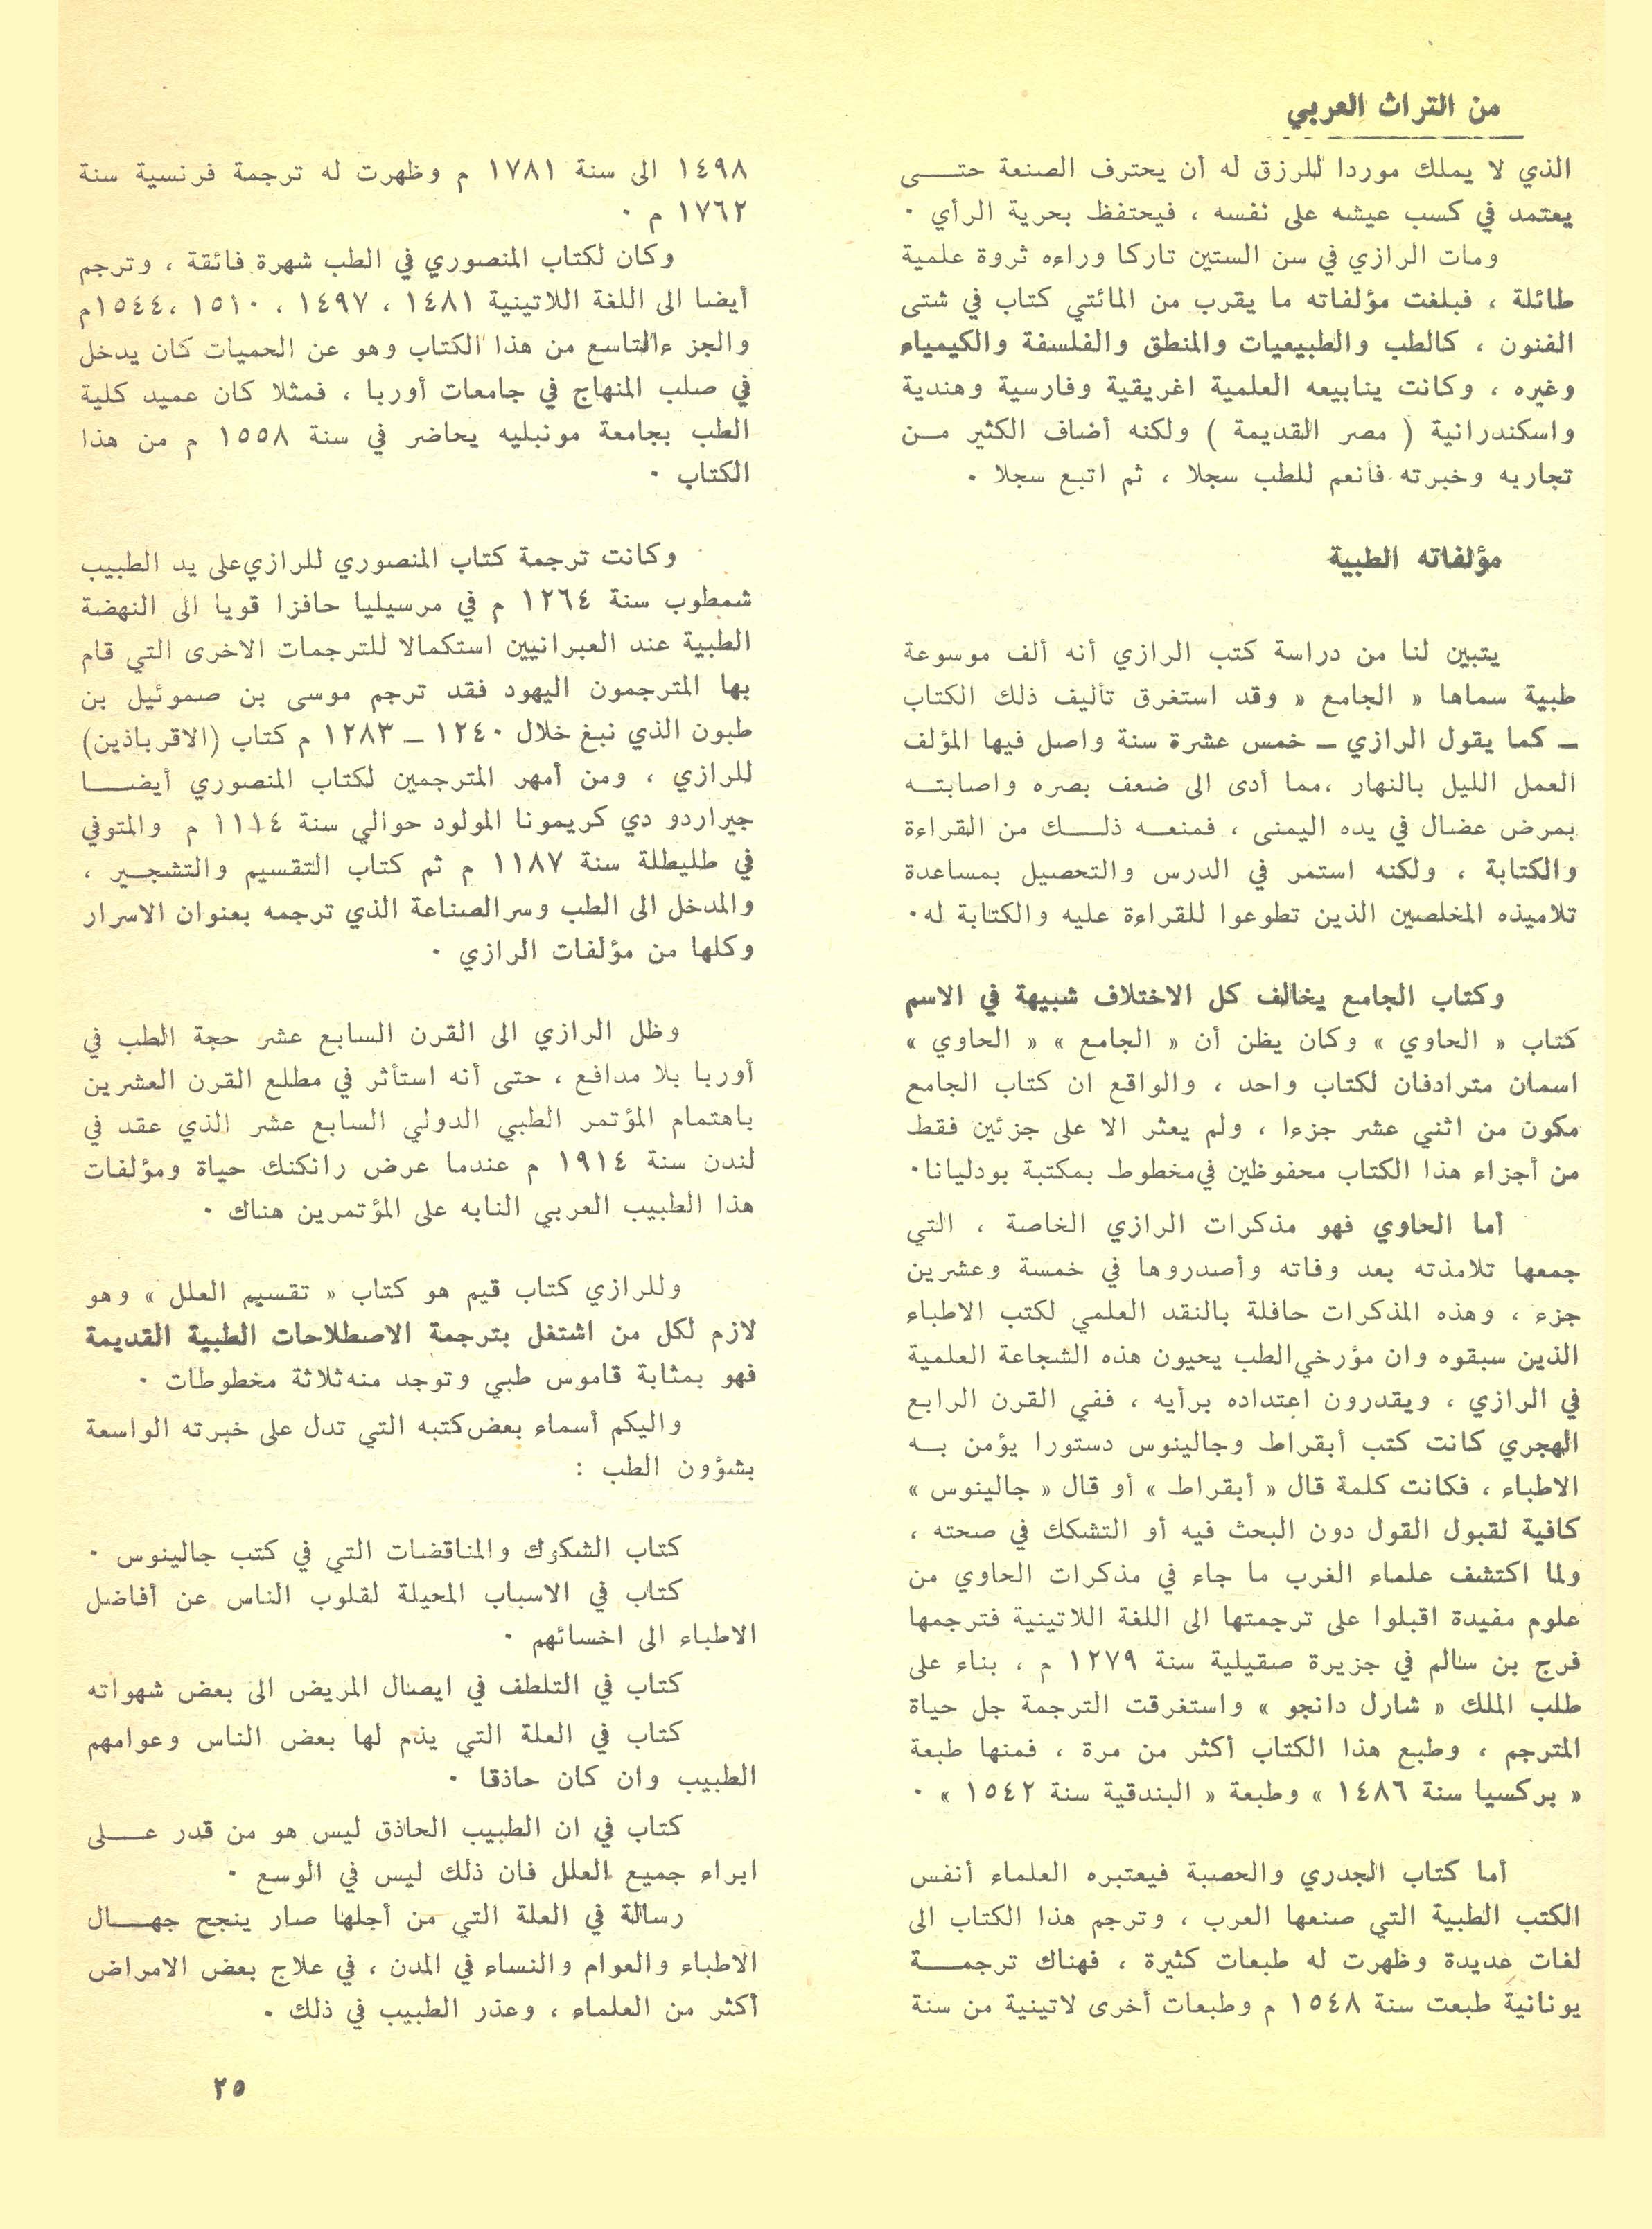 من التراث العربي
الذي لا يملك موردا للرزق له أن يحترف الصنعة حتى
يعتمد في كسب عيشه على نفسه ، فيحتفظ بحرية الرأي ·
ومات الرازي في سن الستين تاركا وراءه ثروة علمية
طائلة ، فبلغت مؤلفاته ما يقرب من المائتي كتاب في شتى
الفنون ، كالطب والطبيعيات والمنطق والفلسفة والكيمياء
وغيره ، وكانت ينابيعه العلمية اغريقية وفارسية وهندية
واسكندرانية ( مصر القديمة ) ولكنه أضاف الكثير من
تجاربه وخبرته فأنعم للطب سجلا ، ثم اتبع سجلا ·
مؤلفاته الطبية
يتبين لنا من دراسة كتب الرازي أنه ألف موسوعة
طبية سماها « الجامع « وقد استغرق تأليف ذلك الكتاب
ــ كما يقول الرازي ــ خمس عشرة سنة واصل فيها المؤلف
العمل الليل بالنهار ،مما أدى الى ضعف بصره واصابته
بمرض عضال في يده اليمنى ، فمنعه ذلك من القراءة
والكتابة ، ولكنه استمر في الدرس والتحصيل بمساعدة
تلاميذه المخلصين الذين تطوعوا للقراءة عليه والكتابة له·
وكتاب الجامع يخالف كل الاختلاف شبيهة في الاسم
كتاب « الحاوي » وكان يظن أن « الجامع » « الحاوي »
اسمان مترادفان لكتاب واحد ، والواقع ان كتاب الجامع
مكون من اثني عشر جزءا ، ولم يعثر الا على جزئين فقط
من أجزاء هذا الكتاب محفوظين في مخطوط بمكتبة بودليانا·
أما الحاوي فهو مذكرات الرازي الخاصة ، التي
جمعها تلامذته بعد وفاته وأصدروها في خمسة وعشرين
جزء ، وهذه المذكرات حافلة بالنقد العلمي لكتب الاطباء
الذين سبقوه وان مؤرخي الطب يحيون هذه الشجاعة العلمية
في الرازي ، ويقدرون اعتداده برأيه ، ففي القرن الرابع
الهجري كانت كتب أبقراط وجالينوس دستورا يؤمن به
الاطباء ، فكانت كلمة قال « أبقراط » أو قال « جالينوس »
كافية لقبول القول دون البحث فيه أو التشكك في صحته ،
ولما اكتشف علماء الغرب ما جاء في مذكرات الحاوي من
علوم مفيدة اقبلوا على ترجمتها الى اللغة اللاتينية فترجمها
فرج بن سالم في جزيرة صقيلية سنة ١٢٧٩ م ، بناء على
طلب الملك « شارل دانجو » واستغرقت الترجمة جل حياة
المترجم ، وطبع هذا الكتاب أكثر من مرة ، فمنها طبعة
« بركسيا سنة ١٤٨٦ » وطبعة « البندقية سنة ١٥٤٢ » ·
أما كتاب الجدري والحصبة فيعتبره العلماء أنفس
الكتب الطبية التي صنعها العرب ، وترجم هذا الكتاب الى
لغات عديدة وظهرت له طبعات كثيرة ، فهناك ترجمة
يونانية طبعت سنة ١٥٤٨ م وطبعات أخرى لاتينية من سنة
١٤٩٨ الى سنة ١٧٨١ م وظهرت له ترجمة فرنسية سنة
١٧٦٢ م ·
وكان لكتاب المنصوري في الطب شهرة فائقة ، وترجم
أيضا الى اللغة اللاتينية ١٤٨١ ، ١٤٩٧ ، ١٥١٠ ،١٥٤٤م
والجز ءالتاسع من هذا الكتاب وهو عن الحميات كان يدخل
في صلب المنهاج في جامعات أوربا ، فمثلا كان عميد كلية
الطب بجامعة مونبليه يحاضر في سنة ١٥٥٨ م من هذا
الكتاب ·
وكانت ترجمة كتاب المنصوري للرازي على يد الطبيب
شمطوب سنة ١٢٦٤ م في مرسيليا حافزا قويا الى النهضة
الطبية عند العبرانيين استكمالا للترجمات الاخرى التي قام
بها المترجمون اليهود فقد ترجم موسى بن صموئيل بن
طبون الذي نبغ خلال ١٢٤٠ ــ ١٢٨٣ م كتاب (الاقرباذين)
للرازي ، ومن أمهر المترجمين لكتاب المنصوري أيضا
جيراردو دي كريمونا المولود حوالي سنة ١١١٤ م والمتوفي
في طليطلة سنة ١١٨٧ م ثم كتاب التقسيم والتشجير ،
والمدخل الى الطب وسر الصناعة الذي ترجمه بعنوان الاسرار
وكلها من مؤلفات الرازي ·
وظل الرازي الى القرن السابع عشر حجة الطب في
أوربا بلا مدافع ، حتى أنه استأثر في مطلع القرن العشرين
باهتمام المؤتمر الطبي الدولي السابع عشر الذي عقد في
لندن سنة ١٩١٤ م عندما عرض رانكنك حياة ومؤلفات
هذا الطبيب العربي النابه على المؤتمرين هناك ·
وللرازي كتاب قيم هو كتاب « تقسيم العلل » وهو
لازم لكل من اشتغل بترجمة الاصطلاحات الطبية القديمة
فهو بمثابة قاموس طبي وتوجد منه ثلاثة مخطوطات ·
واليكم أسماء بعض كتبه التي تدل على خبرته الواسعة
بشؤون الطب :
كتاب الشكوك والمناقضات التي في كتب جالينوس ·
كتاب في الاسباب المحيلة لقلوب الناس عن أفاضل
الاطباء الى اخسائهم ·
كتاب في التلطف في ايصال المريض الى بعض شهواته
كتاب في العلة التي يذم لها بعض الناس وعوامهم
الطبيب وان كان حاذقا ·
كتاب في ان الطبيب الحاذق ليس هو من قدر على
ابراء جميع العلل فان ذلك ليس في الوسع ·
رسالة في العلة التي من أجلها صار ينجح جهال
الاطباء والعوام والنساء في المدن ، في علاج بعض الامراض
أكثر من العلماء ، وعذر الطبيب في ذلك ·
٢٥